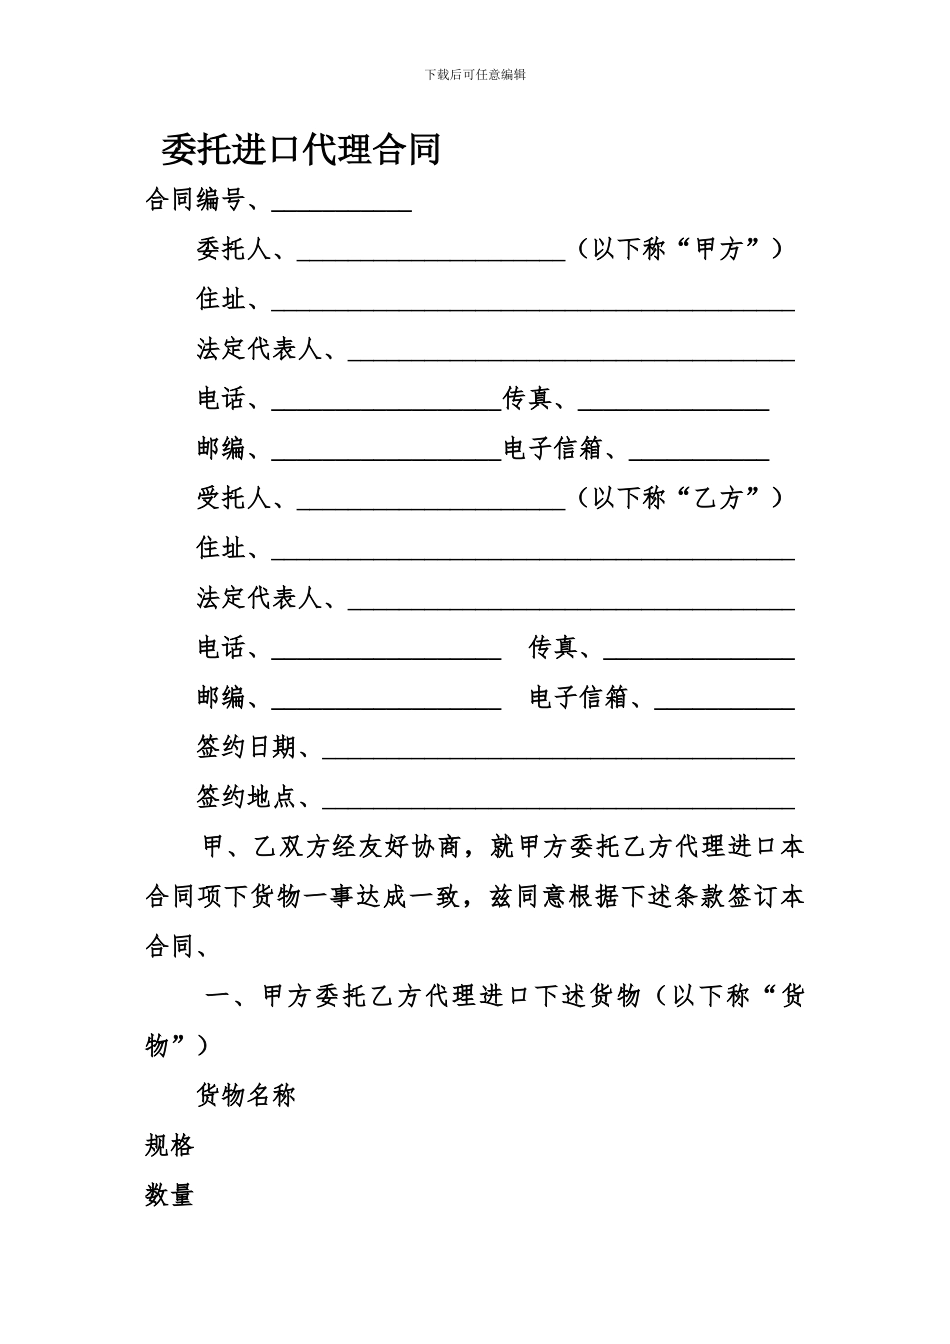 下载后可任意编辑
委托进口代理合同
合同编号、___________
委托人、_____________________（以下称“甲方”）
住址、_________________________________________
法定代表人、___________________________________
电话、__________________传真、_______________
邮编、__________________电子信箱、___________
受托人、_____________________（以下称“乙方”）
住址、_________________________________________
法定代表人、___________________________________
电话、__________________　传真、_______________
邮编、__________________　电子信箱、___________
签约日期、_____________________________________
签约地点、_____________________________________
甲、乙双方经友好协商，就甲方委托乙方代理进口本
合同项下货物一事达成一致，兹同意根据下述条款签订本
合同、
一、甲方委托乙方代理进口下述货物（以下称“货
物”）
货物名称
规格
数量